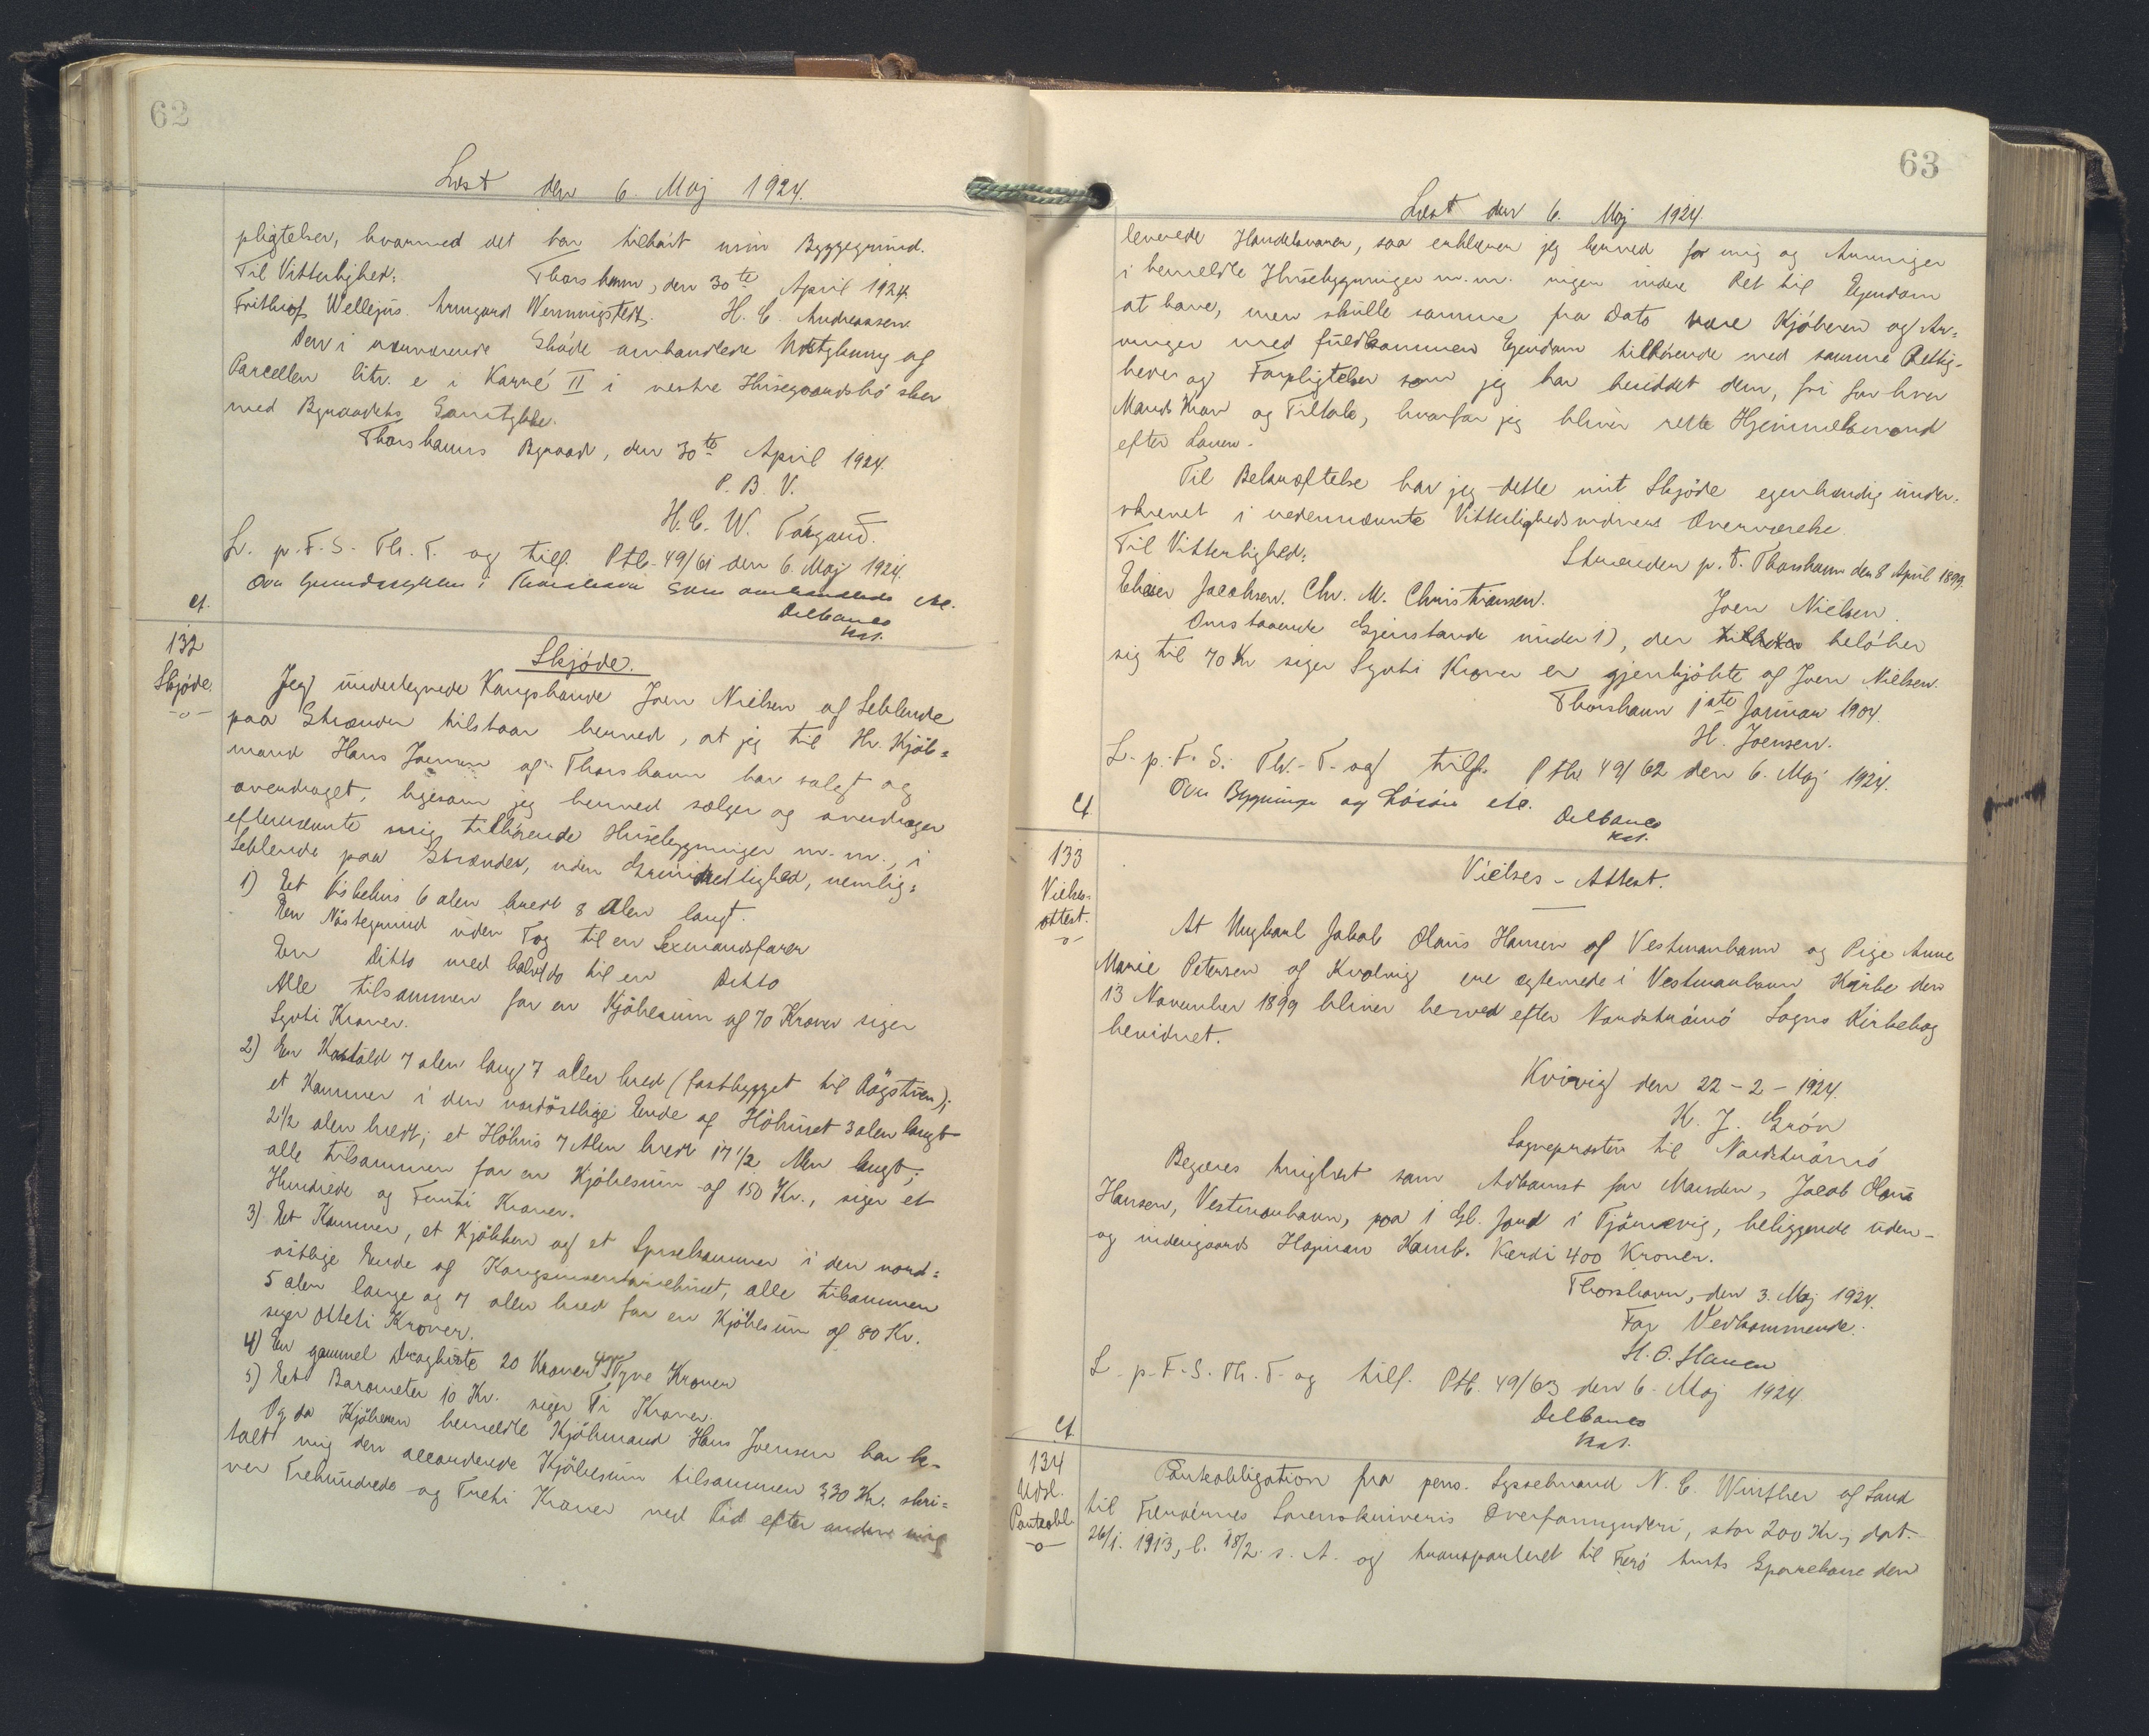 62
Læst den 6. Maj 1924.
pligtelser, hvormed det har tilhørt min Byggegrund.
Til Vitterlighed: Thorshavn, den 30te April 1924.
Frithiof Wellejus. Armgard Wenningstedt. H. C. Andreassen
Den i nærværende Skøde omhandlede Udstykning af
Parcellen litr. e i Karré II i vestre Husegaardsbø sker
med Byraadets Samtykke.
Thorshavns Byraad, den 30te April 1924.
P. B. V.
H. C. W. Tórgard.
L. p. F. S. Th. T. og tilf. Ptb. 49/61 den 6. Maj 1924.
Ovu Grundstykke i Thorshavn som omhandlede etc.
Delbanco
kst.
Ct.
132
Skjøde.
-o-
Skjøde.
Jeg undertegnede Kongsbonde Joen Nielsen af Selklende
paa Strænder tilstaar herved, at jeg til Hr. Kjøb=
mand Hans Joensen af Thorshavn har solgt og
overdraget, ligesom jeg herved sælger og overdrager
efternævnte mig tilhørende Husebygninger m. m., i
Selklende paa Strænder, uden Grundrettighed, nemlig:
1) Et Fiskehus 6 alen bredt 8 Alen langt.
Een Nøstegrund uden Tag til en Sexmandsfarer
En Ditto med halvt do til en Ditto
Alle tilsammen for en Kjøbesum af 70 Kroner siger
Syvti Kroner.
2) En Kostald 7 alen lang 7 allen bred (fastbygget til Røgstuen);
et Kammer i den nordøstlige Ende af Høhuset 3 alen langt
2 1/2 alen bredt; et Høhus 7 Alen bredt 17 1/2 Alen langt;
alle tilsammen for en Kjøbesum af 150 Kr., siger et
Hundrede og Femti Kroner.
3) Et Kammer, et Kjøkken og et Spisekammer i den nord=
østlige Ende af Kongsinventariehuset, alle tilsammen
5 alen lange og 7 allen bred for en Kjøbesum af 80 Kr.
siger Otteti Kroner.
4) En gammel Dragkiste 20 Kroner siger Tyve Kroner
5) Et Barometer 10 Kr. siger Ti Kroner.
Og da Kjøberen bemeldte Kjøbmand Hans Joensen har be-
talt mig den accorderede Kjøbesum tilsammen 330 Kr. skri=
ver Trehundrede og Treti Kroner ved Tid efter anden mig
63
Læst den 6. Maj 1924
leverede Handelsvarer, saa erklærer jeg herved for mig og Arvinger
i bemeldte Husebygninger m. m. ingen videre Ret til Ejendom
at have, men skulle samme fra Dato være Kjøberen og Ar=
vinger med fuldkommen Ejendom tilhørende med samme Rettig-
heder og Forpligtelser som jeg har besiddet dem, fri for hver
Mands Krav og Tiltale, hvorfor jeg bliver rette Hjemmelsmand
efter Loven.
Til Bekræftelse har jeg dette mit Skjøde egenhændig under=
skrevet i nedennævnte Vitterlighedsvidners Overværelse.
Til Vitterlighed: Strænder p. t. Thorshavn den 8 April 1899.
Elieser Jacobsen. Chr. M. Christiansen. Joen Nielsen.
Omstaaende Gjenstande under 1), der beløber
sig til 70 Kr siger Syvti Kroner er gjenkjøbte af Joen Nielsen.
Thorshavn 1ste Januar 1904.
H. Joensen.
L. p. F. S. Th. T. og tilf. Ptb. 49/62 den 6. Maj 1924.
Ovu Bygninger og Løsøre etc.
Delbanco
kst.
Ct.
133
Vielses-
attest.
-o-
Vielses-Attest.
At Ungkarl Jakob Olaus Hansen af Vestmanhavn og Pige Anne
Marie Petersen af Kvalvig ere ægteviede i Vestmanhavn Kirke den
13 November 1899 bliver herved efter Nordstrømø Sogns Kirkebog
bevidnet.
Kvivig den 22-2-1924.
K. J. Grøn
Sognepræsten til Nordstrømø
Begæres tinglæst som Adkomst for Manden, Jacob Olaus
Hansen, Vestmanhavn, paa 1 Gl. Jord i Tjørnevig, beliggende uden-
og indengaards Hafnar Kamb. Værdi 400 Kroner.
Thorshavn, den 3. Maj 1924.
For Vedkommende:
H. O. Hansen
L. p. F. S. Th. T. og tilf. Ptb. 49/63 den 6. Maj 1924
Delbanco
kst.
Ct.
134
Udsl.
Panteobl.
-o-
Panteobligation fra pens. Sysselmand N. C. Winther af Sand
til Færøernes Overformynderi, stor 200 Kr., dat.
26/1. 1913, l. 18/2 s. A. og transporteret til Færø Amts Sparekasse den